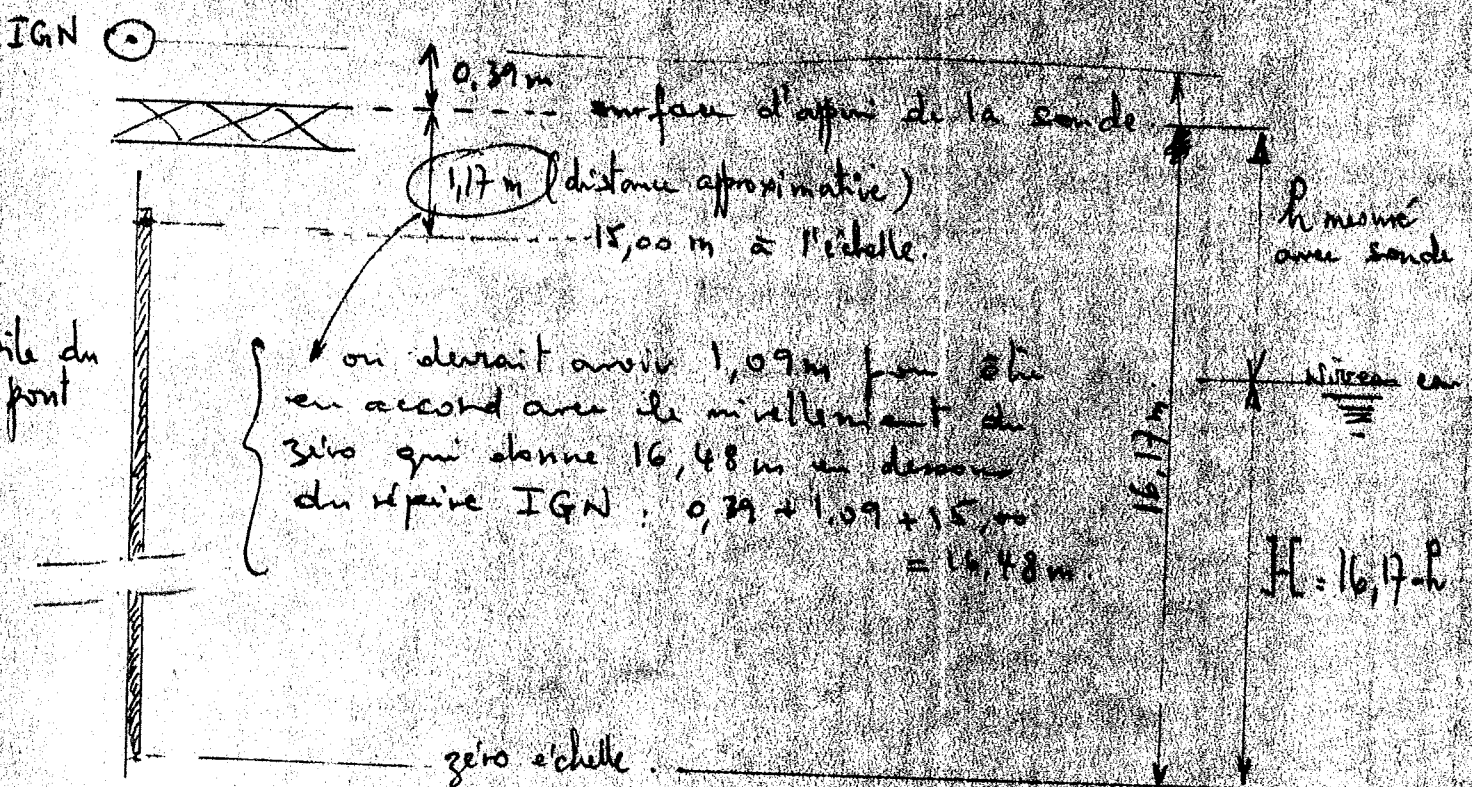 IGN
0,39 m
surface d'appui de la sonde.
1,17 m (distance approximative)
15,00 m à l'échelle.
h mesuré
avec sonde
pile du
pont
on devrait avoir 1,09 m pour être
en accord avec le nivellement du
zéro qui donne 16,48 m en dessous
du répère IGN : 0,39 + 1.09 + 15,00
= 16,48 m.
Niveau eau
16,17 m.
H = 16,17-h
zéro échelle.